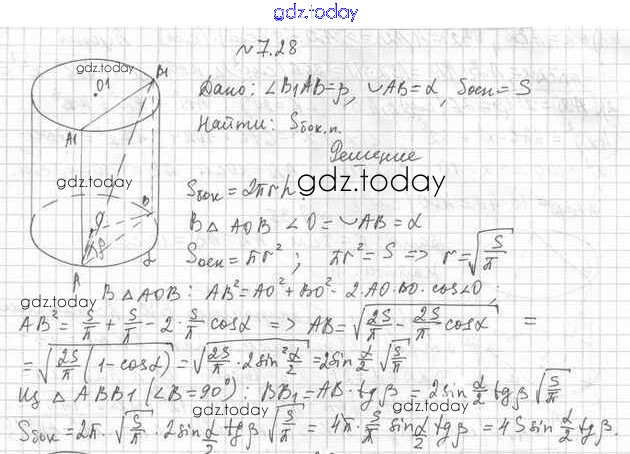 gdz.today
№ 7.28
gdz.today
B1
O1
Дано: ∠B₁AB=β, ∪AB=α, Sосн=S
A1
Найти: Sбок.п.
Решение
gdz.today
gdz.today
Sбок=2πrh.
B
O
В △ AOB ∠O=∪AB=α
β
Sосн=πr²; πr²=S => r=√(S/π)
A
α
В △AOB: AB²=AO²+BO²-2·AO·BO·cos∠O;
gdz.today
AB²=S/π+S/π-2·S/π cosα => AB=√(2S/π-2S/π cosα) =
=√(2S/π(1-cosα))=√(2S/π·2sin²α/2)=2sin α/2 √(S/π)
Из △ABB1 (∠B=90°): BB₁=AB·tgβ=2sin α/2 tgβ √(S/π)
gdz.today
gdz.today
Sбок=2π·√(S/π)·2sin α/2 tgβ √(S/π)=4π·S/π sin α/2 tgβ=4S sin α/2 tgβ.